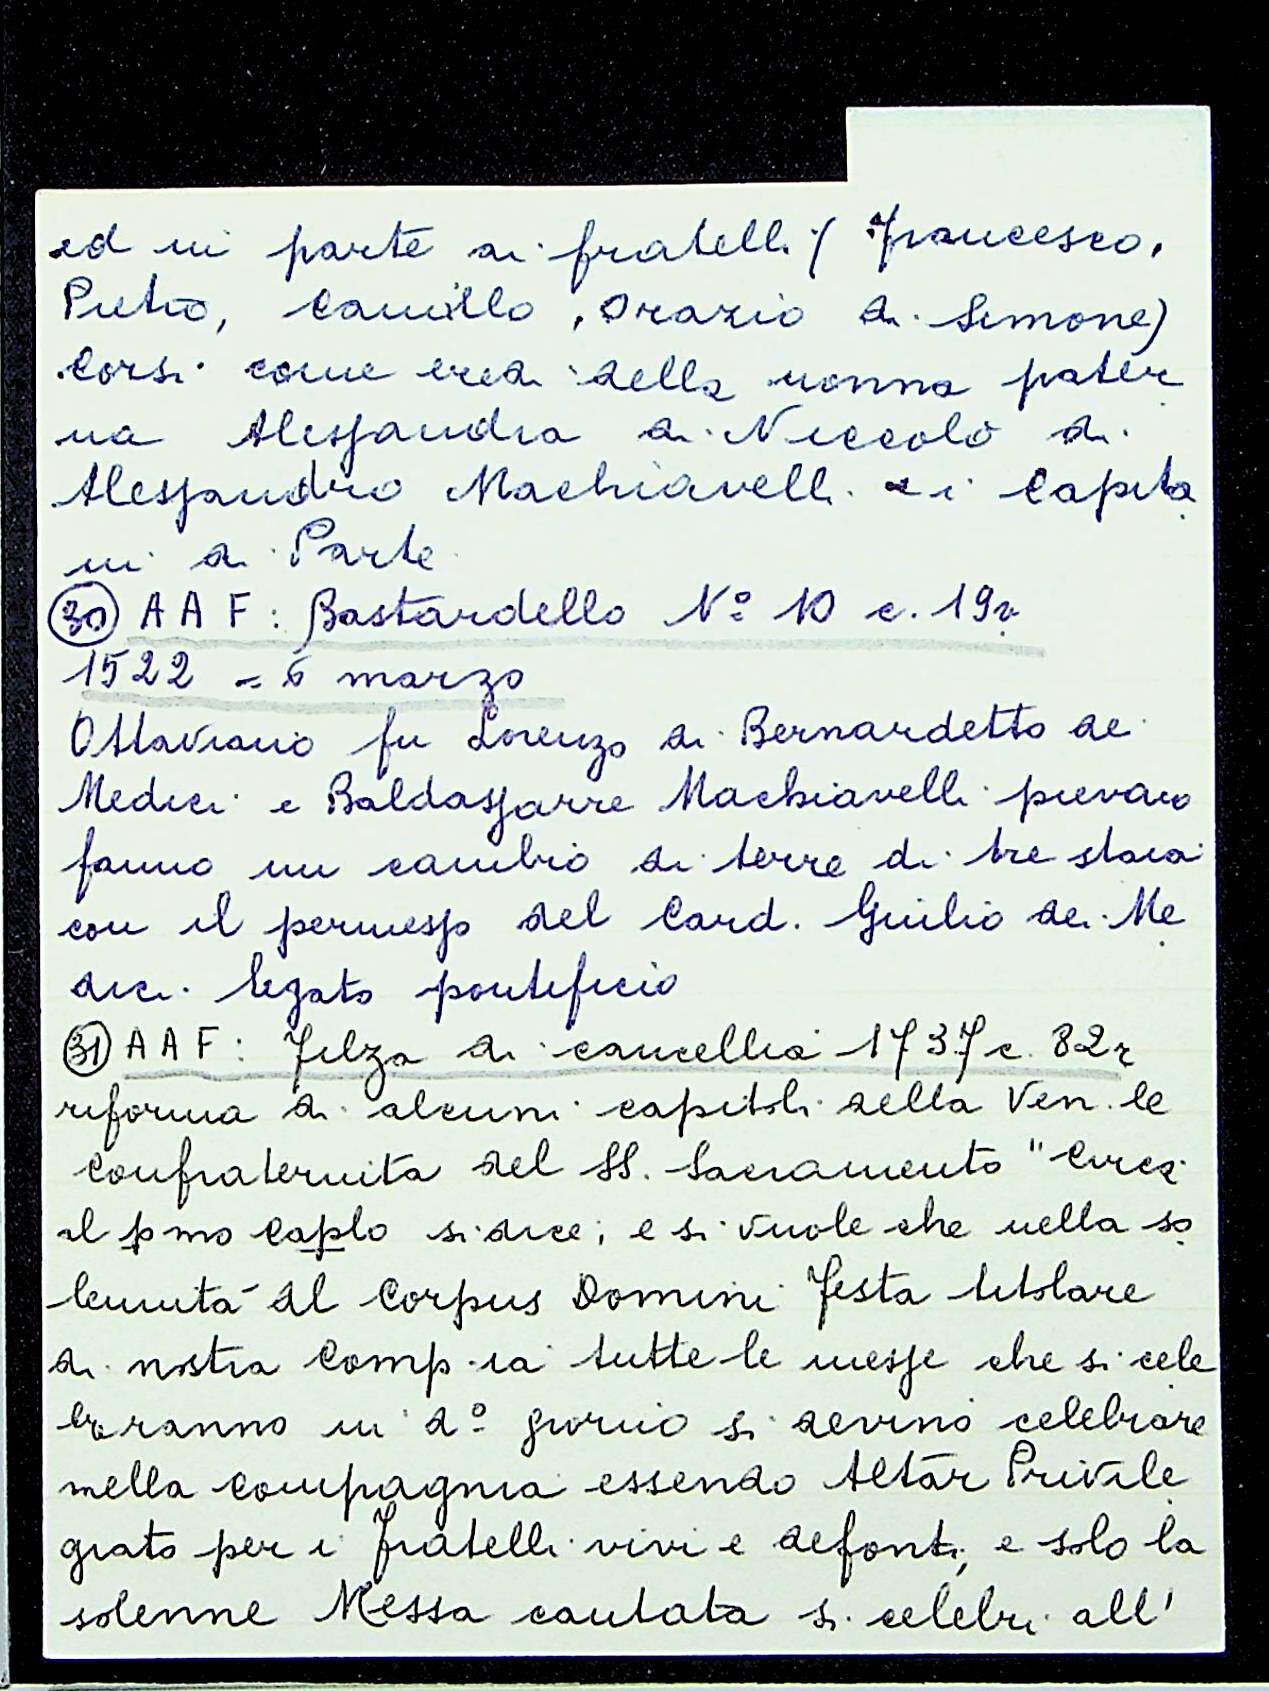 ed in parte di fratelli (Francesco,
Pietro, Camillo, Orazio di Simone)
Corsi come eredi della nonna pater
na Alessandra di Niccolò di
Alessandro Machiavelli e i Capita
ni di Parte
30 AAF: Bastardello Nº 10 c. 19v
1522 = 6 marzo
Ottaviano fu Lorenzo di Bernardetto de
Medici e Baldassarre Machiavelli pievano
fanno un cambio di terre di tre staia
con il permesso del Card. Giulio dei Me
dici legato pontificio
31 AAF: Filza di cancellia 1737 c. 82r
riforma di alcuni capitoli della Ven.le
Confraternita del SS. Sacramento "Circa
il pmo Caplo si dice; e si vuole che nella so
lennità del Corpus Domini Festa titolare
di nostra Comp.ia tutte le messe che si cele
breranno in dº giorno si devino celebrare
nella Compagnia essendo Altar Privile
giato per i Fratelli vivi e defonti, e solo la
solenne Messa cantata si celebri all'